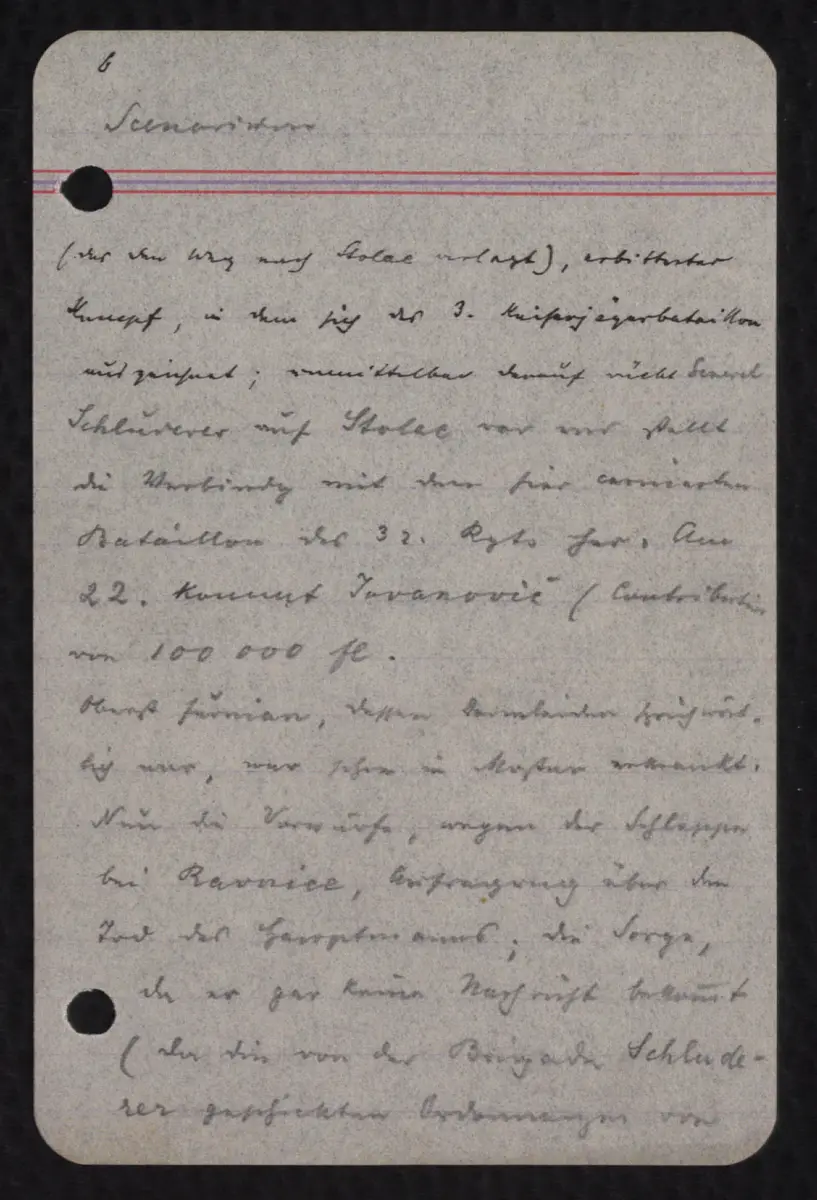 6
Scenarium
(der den Weg nach Stolac verlegt), erbitterter
Kampf, in dem sich das 3. Kaiserjägerbataillon
auszeichnet; unmittelbar darauf rückt General
Schluderer auf Stolac vor und stellt
die Verbindg mit dem hier cernierten
Bataillon des 32. Rgts her. Am
22. kommt Jovanović (Contribution
von 100 000 fl.
Oberst, dessen sprichwört-
lich war, war schon in Mostar erkrankt.
Nun die Vorwürfe, wegen der Schlappe
bei Ravnice, Aufregung über den
Tod des Hauptmanns, die Sorge,
da er gar keine Nachricht bekommt
(da die von der Brigade Schlude-
rer geschickten Ordonnanzen von